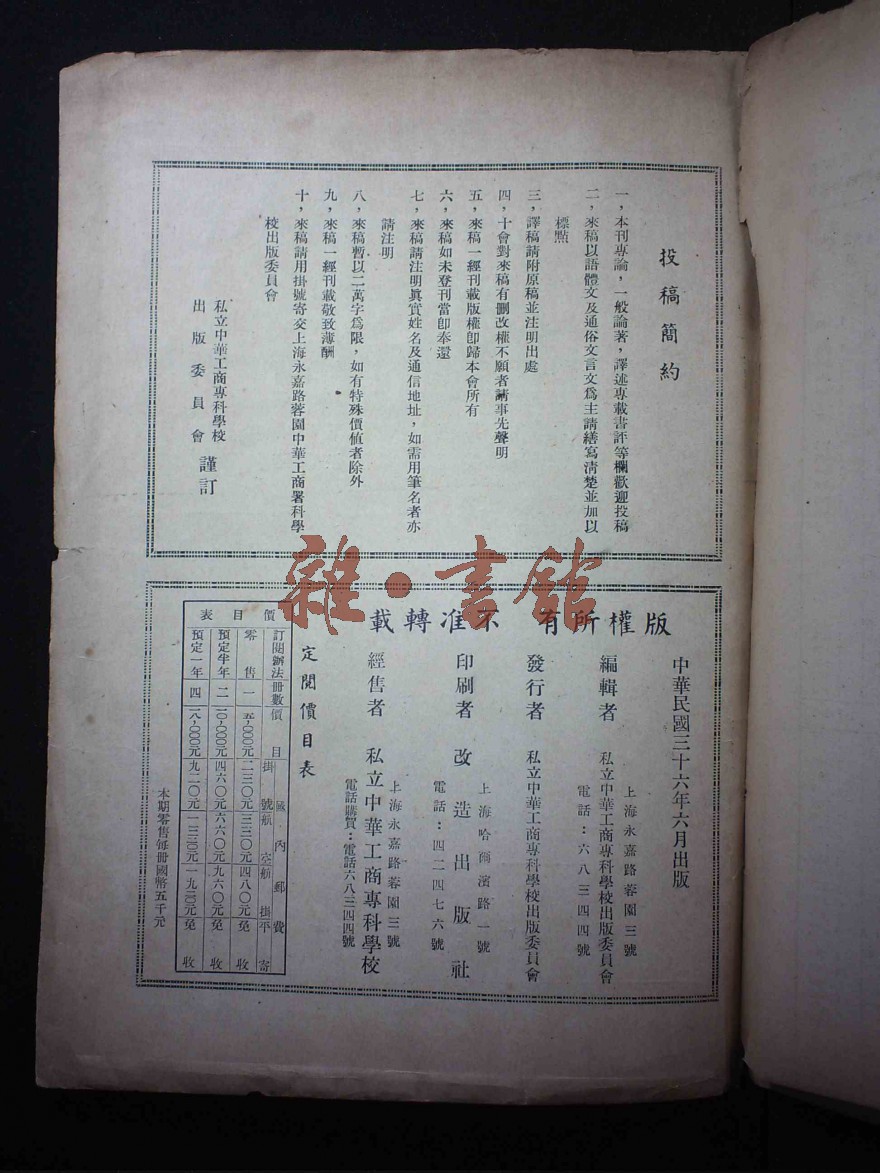 投稿簡約
一，本刊專論，一般論著，譯述專載書評等欄歡迎投稿
二，來稿以語體文及通俗文言文爲主請繕寫清楚並加以
標點
三，譯稿請附原稿並注明出處
四，十會對來稿有删改權不願者請事先聲明
五，來稿一經刊載版權卽歸本會所有
六，來稿如未登刊當卽奉還
七，來稿請注明眞實姓名及通信地址，如需用筆名者亦
請注明
八，來稿暫以二萬字爲限，如有特殊價值者除外
九，來稿一經刊載敬致薄酬
十，來稿請用掛號寄交上海永嘉路蓉園中華工商署科學
校出版委員會
私立中華工商專科學校
出版委員會 謹訂
雜·書館
版權所有 不准轉載
中華民國三十六年六月出版
編輯者 私立中華工商專科學校出版委員會
上海永嘉路蓉園三號
電話：六八三四四號
發行者 私立中華工商專科學校出版委員會
印刷者 改造出版社
上海哈爾濱路一號
電話：四二四七六號
經售者 私立中華工商專科學校
上海永嘉路蓉園三號
電話購買：電話六八三四四號
定閱價目表
價目表
訂閱辦法 冊數 價目 國內郵費 掛號 航空 航掛 平寄
零售 一 五，〇〇〇元 二三〇元 三三〇元 四八〇元 免收
預定半年 二 一〇，〇〇〇元 四六〇元 六六〇元 九六〇元 免收
預定一年 四 一八，〇〇〇元 九二〇元 一三二〇元 一九二〇元 免收
本期零售每冊國幣五千元